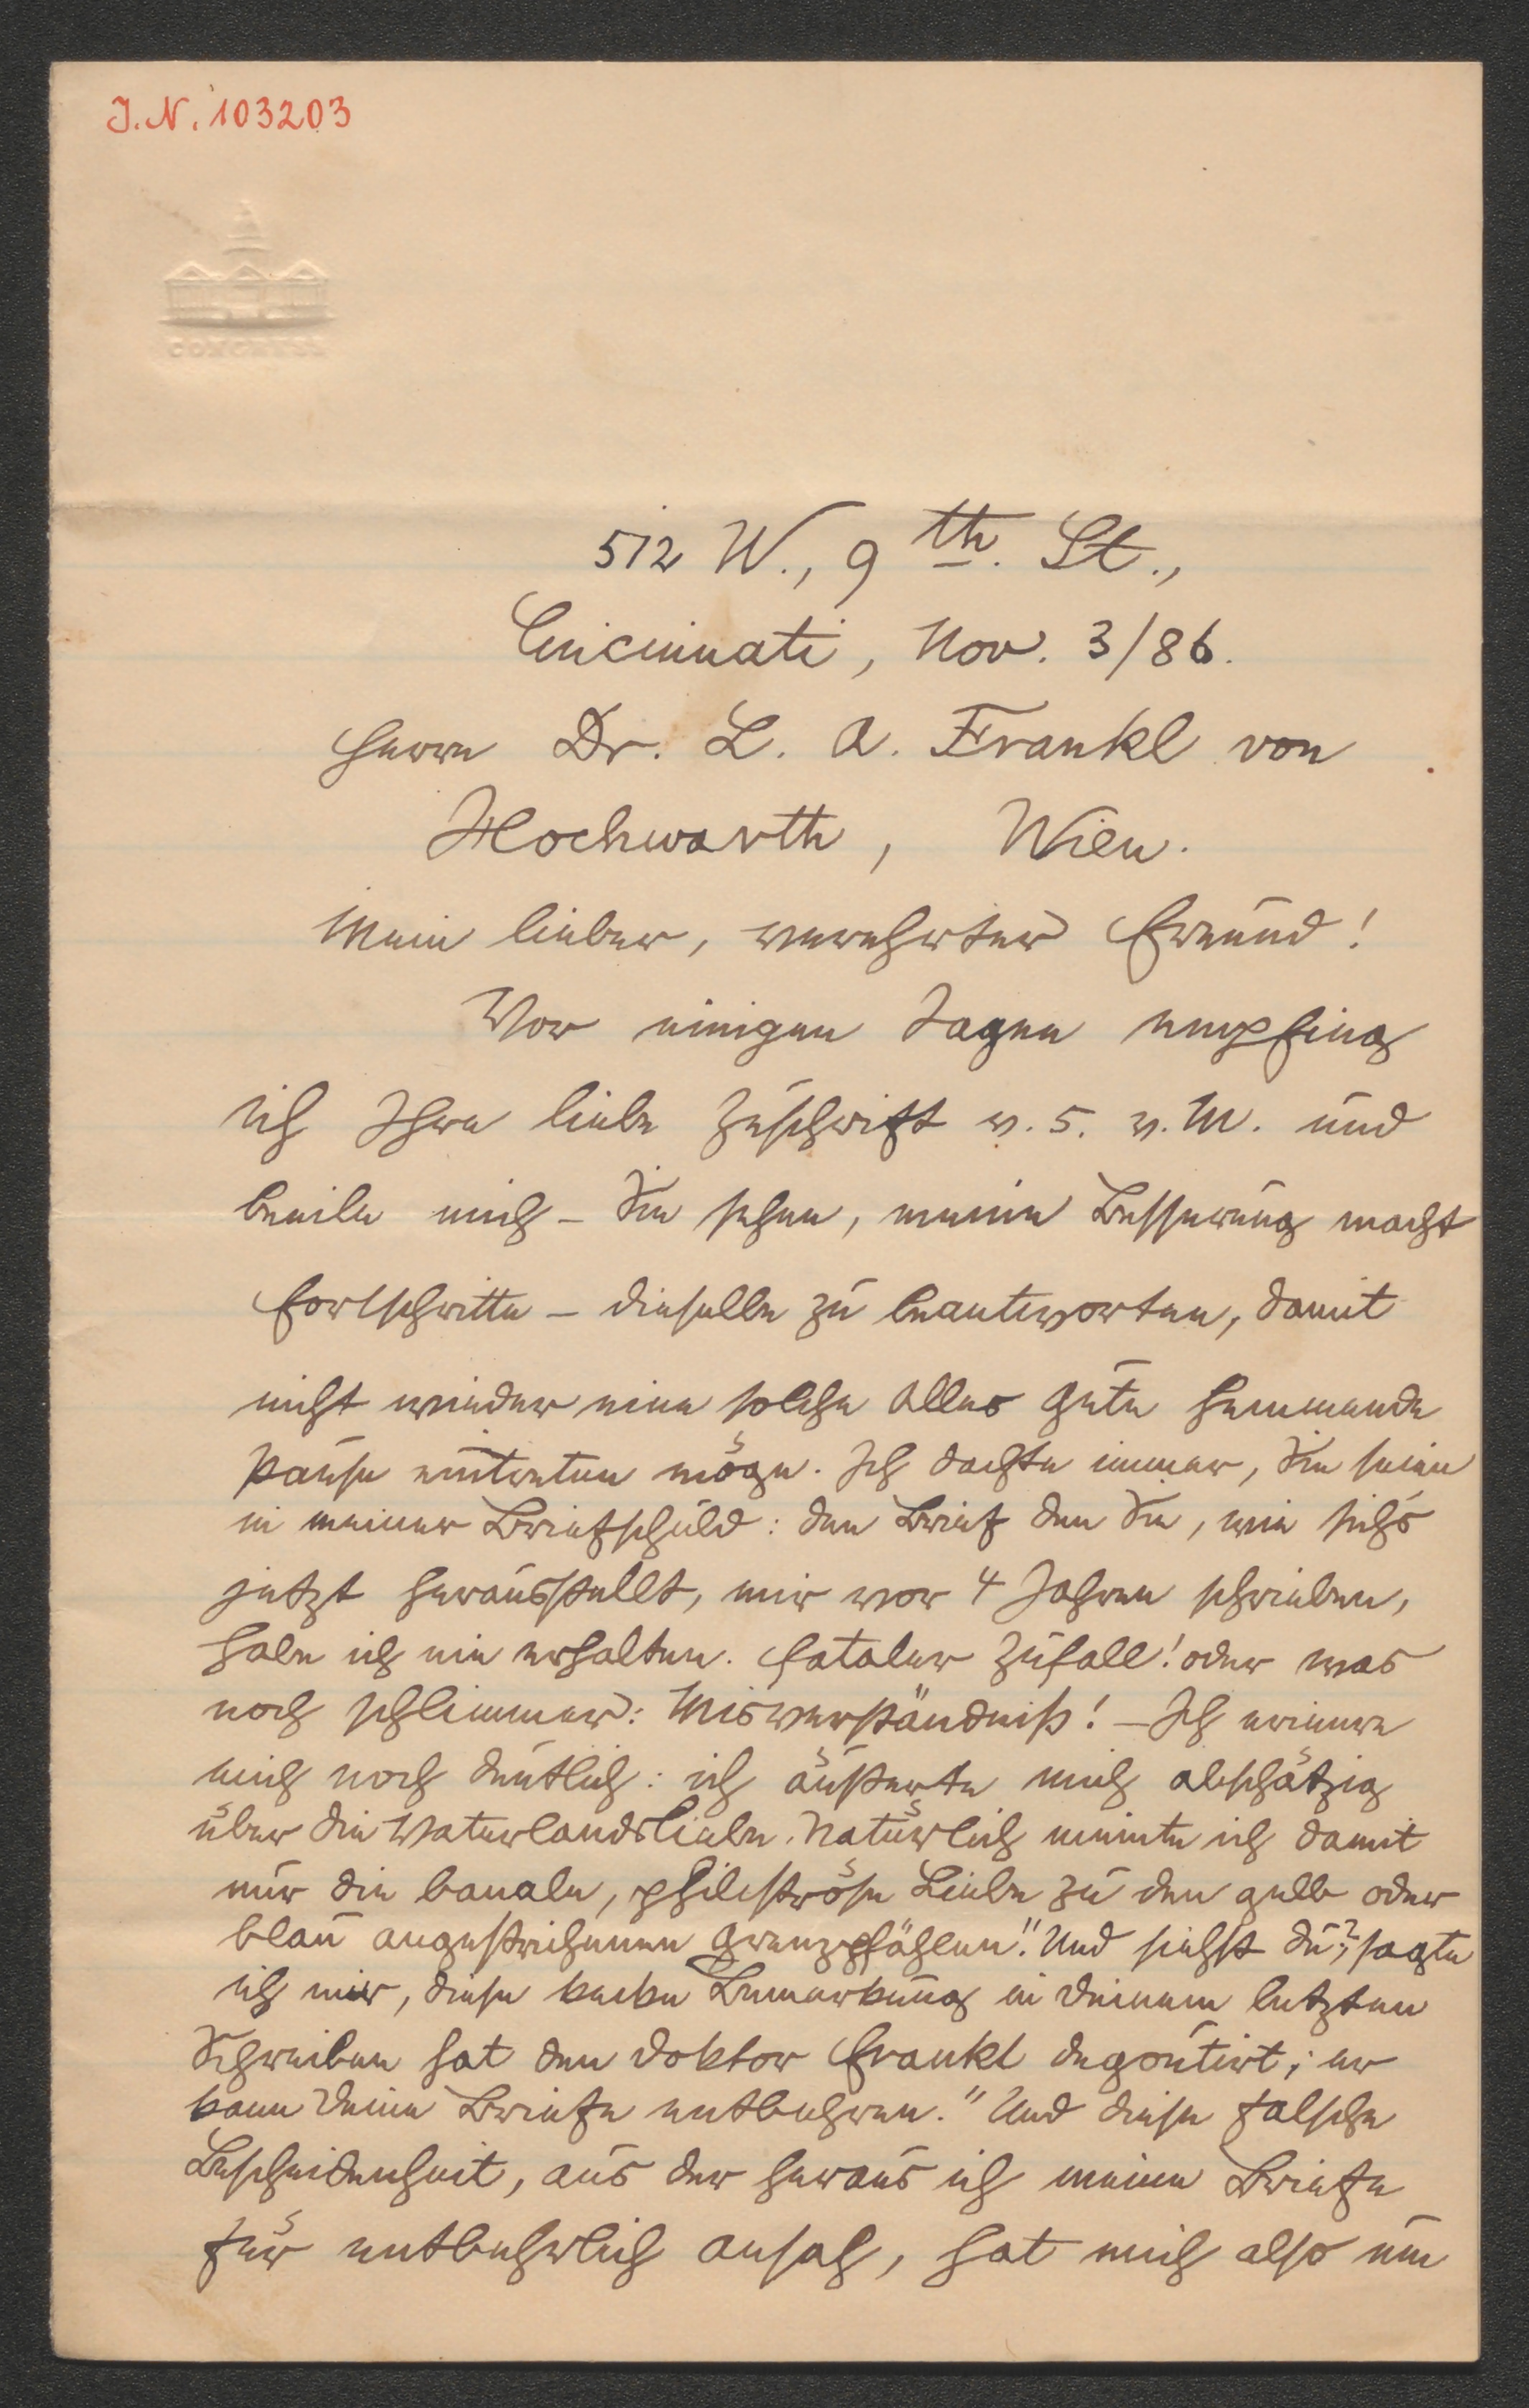 J.N. 103203
CONGRESS
512 W., 9th. St.,
Cincinnati, Nov. 3/86.
Herrn Dr. L. A. Frankl von
Hochwarth, Wien.
Mein lieber, verehrter Freund!
Vor einigen Tagen empfing
ich Ihre liebe Zuschrift v. 5. v. M. und
beeile mich – Sie sehen, meine Besserung macht
Fortschritte – dieselbe zu beantworten, damit
nicht wieder eine solche alles Gute hemmende
Pause eintreten möge. Ich dachte immer, Sie seien
in meiner Briefschuld: den Brief den Sie, wie sich's
jetzt herausstellt, mir vor 4 Jahren schrieben,
habe ich nie erhalten. Fataler Zufall! oder was
noch schlimmer: Misverständniß! – Ich erinnere
mich noch deutlich: ich äußerte mich abschätzig
über die Vaterlandsliebe. Natürlich meinte ich damit
nur die banale, philiströse Liebe zu den gelb oder
blau angestrichenen Grenzpfählen." Und siehst du?, sagte
ich mir, diese kecke Bemerkung in deinem letzten
Schreiben hat den Doktor Frankl degoutirt; er
kann deine Briefe entbehren." Und diese falsche
Bescheidenheit, aus der heraus ich meine Briefe
für entbehrlich ansah, hat mich also um